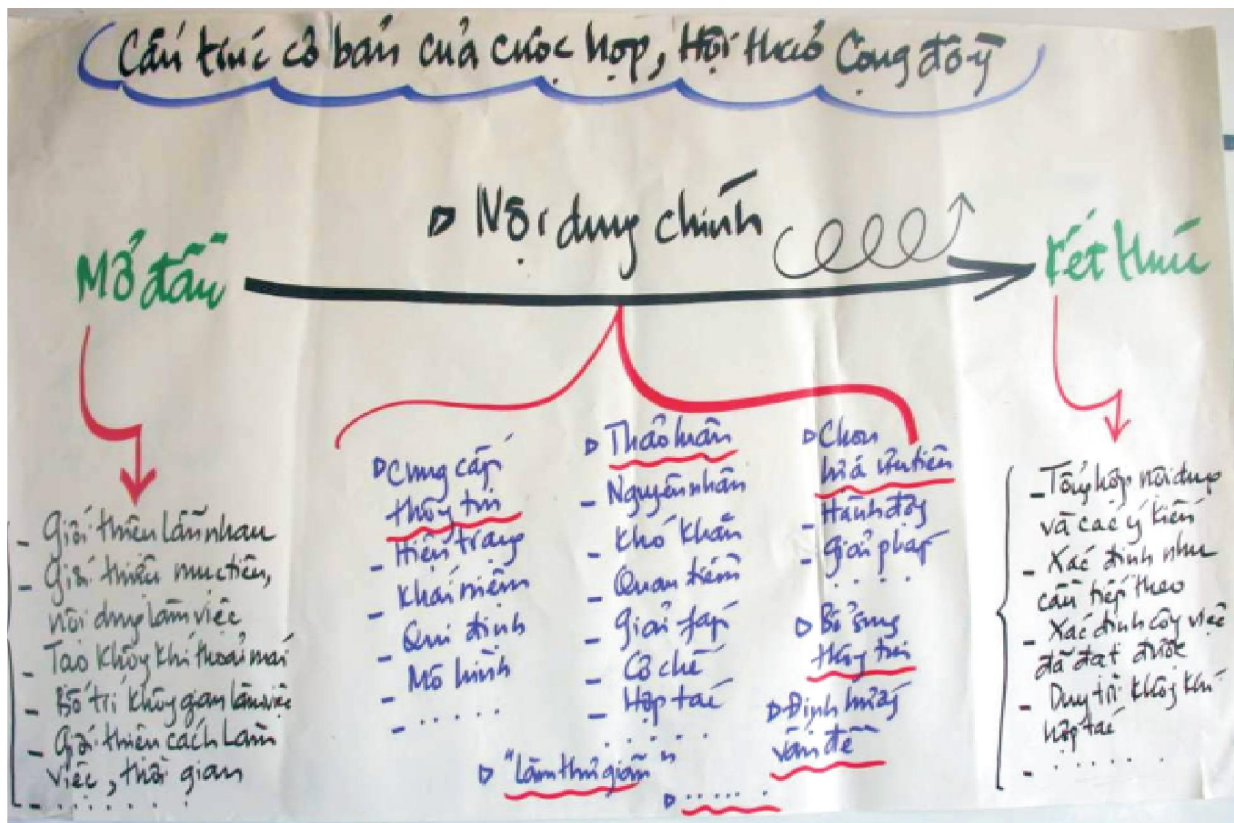 Cấu trúc cơ bản của cuộc họp, Hội thảo Cộng đồng
▷ Nội dung chính
Mở đầu
Kết thúc
- Giới thiệu lẫn nhau
- Giới thiệu mục tiêu,
nội dung làm việc
- Tạo không khí thoải mái
- Bố trí không gian làm việc
- Giới thiệu cách làm
việc, thời gian
- . . . . . .
▷ Cung cấp
thông tin
- Hiện trạng
- Khái niệm
- Qui định
- Mô hình
- . . . . .
▷ Thảo luận
- Nguyên nhân
- Khó khăn
- Quan điểm
- Giải pháp
- Cơ chế
- Hợp tác
- . . . . .
▷ "Làm thư giãn"
▷ Chọn
lựa ưu tiên
- Hành động
- Giải pháp
- . . . . .
▷ Bổ sung
thông tin
▷ Định hướng
vấn đề
▷ . . . . . .
- Tổng hợp nội dung
và các ý kiến
- Xác định nhu
cầu tiếp theo
- Xác định công việc
đã đạt được
- Duy trì không khí
hợp tác
- . . . . .